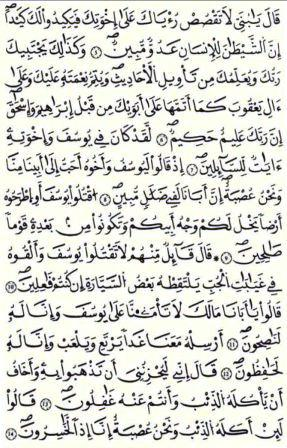 قَالَ يَٰبُنَيِّ لَا تَقْصُصْ رُءْيَاكَ عَلَىٰ إِخْوَتِكَ فَيَكِيدُوا۟ لَكَ كَيْدًا
إِنَّ ٱلشَّيْطَٰنَ لِلْإِنسَٰنِ عَدُوٌّ مُّبِينٌ ٥ وَكَذَٰلِكَ يَجْتَبِيكَ
رَبُّكَ وَيُعَلِّمُكَ مِن تَأْوِيلِ ٱلْأَحَادِيثِ وَيُتِمُّ نِعْمَتَهُۥ عَلَيْكَ وَعَلَىٰٓ
ءَالِ يَعْقُوبَ كَمَآ أَتَمَّهَا عَلَىٰٓ أَبَوَيْكَ مِن قَبْلُ إِبْرَٰهِيمَ وَإِسْحَٰقَ
إِنَّ رَبَّكَ عَلِيمٌ حَكِيمٌ ٦ لَّقَدْ كَانَ فِى يُوسُفَ وَإِخْوَتِهِۦٓ
ءَايَٰتٌ لِّلسَّآئِلِينَ ٧ إِذْ قَالُوا۟ لَيُوسُفُ وَأَخُوهُ أَحَبُّ إِلَىٰٓ أَبِينَا مِنَّا
وَنَحْنُ عُصْبَةٌ إِنَّ أَبَانَا لَفِى ضَلَٰلٍ مُّبِينٍ ٨ ٱقْتُلُوا۟ يُوسُفَ أَوِ ٱطْرَحُوهُ
أَرْضًا يَخْلُ لَكُمْ وَجْهُ أَبِيكُمْ وَتَكُونُوا۟ مِنۢ بَعْدِهِۦ قَوْمًا
صَٰلِحِينَ ٩ قَالَ قَآئِلٌ مِّنْهُمْ لَا تَقْتُلُوا۟ يُوسُفَ وَأَلْقُوهُ
فِى غَيَٰبَٰتِ ٱلْجُبِّ يَلْتَقِطْهُ بَعْضُ ٱلسَّيَّارَةِ إِن كُنتُمْ فَٰعِلِينَ ١٠
قَالُوا۟ يَٰٓأَبَانَا مَالَكَ لَا تَأْمَ۬نَّا عَلَىٰ يُوسُفَ وَإِنَّا لَهُۥ
لَنَٰصِحُونَ ١١ أَرْسِلْهُ مَعَنَا غَدًا يَرْتَعِ وَيَلْعَبْ وَإِنَّا لَهُۥ
لَحَٰفِظُونَ ١٢ قَالَ إِنِّى لَيُحْزِنُنِىٓ أَن تَذْهَبُوا۟ بِهِۦ وَأَخَافُ
أَن يَأْكُلَهُ ٱلذِّئْبُ وَأَنتُمْ عَنْهُ غَٰفِلُونَ ١٣ قَالُوا۟
لَئِنْ أَكَلَهُ ٱلذِّئْبُ وَنَحْنُ عُصْبَةٌ إِنَّآ إِذًا لَّخَٰسِرُونَ ١٤